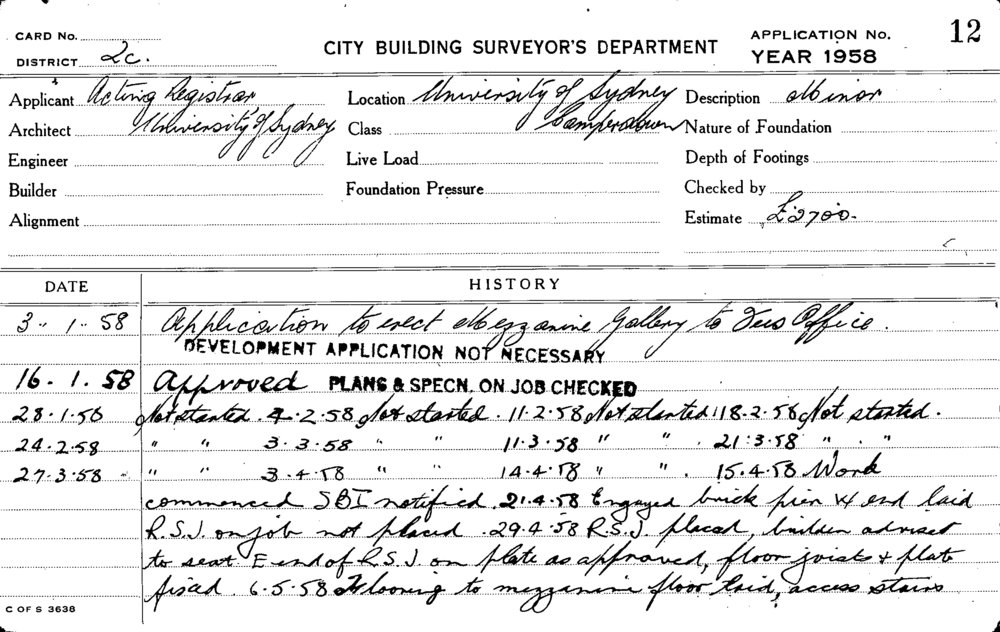 12
CARD No.
DISTRICT 2c.
CITY BUILDING SURVEYOR'S DEPARTMENT
APPLICATION No.
YEAR 1958
Applicant Acting Registrar Location University of Sydney Description Minor
Architect University of Sydney Class Camperdown Nature of Foundation
Engineer Live Load Depth of Footings
Builder Foundation Pressure Checked by
Alignment Estimate £2700.
DATE HISTORY
3. 1. 58 Application to erect Mezzanine Gallery to Fees Office.
DEVELOPMENT APPLICATION NOT NECESSARY
16. 1. 58 Approved PLANS & SPECN. ON JOB CHECKED
28.1.58 Not started. 4.2.58 Not started. 11.2.58 Not started 18.2.58 Not started.
24.2.58 " " 3.3.58 " " 11.3.58 " ". 21.3.58 " . "
27.3.58 " " 3.4.58 " " 14.4.58 " ". 15.4.58 Work
commenced SBI notified. 21.4.58 Engaged brick pier W end laid
R.S.J. on job not placed. 29.4.58 R.S.J. placed, builder advised
to seat E end of R.S.J on plate as approved, floor joists & plate
fixed. 6.5.58 Flooring to mezzanine floor laid, access stairs
C OF S 3638